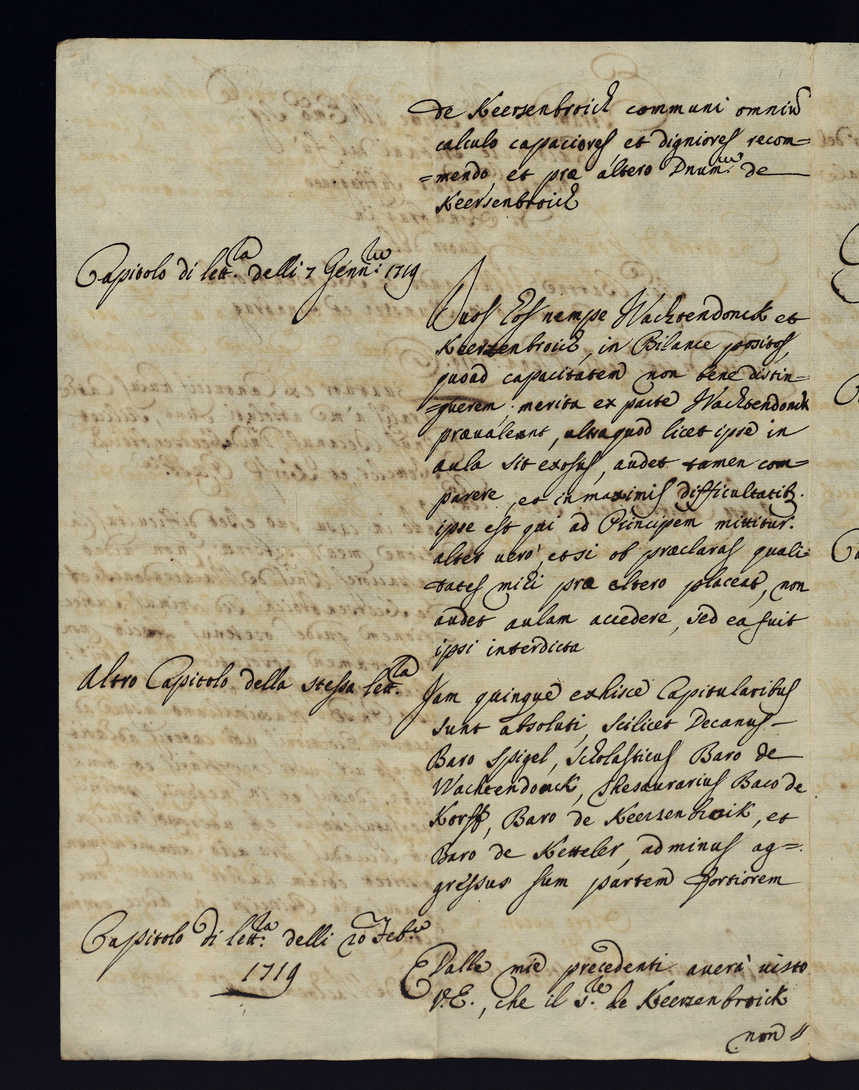 de Keerzenbroick communi omniū
calculo capaciores et digniores recom=
=mendo, et præ altero Dnum.m de
Keersenbroick
Capitolo di lett.ra delli 7 Genn.ro 1719
Quos eos nempe Wachtendonck et
Keerzenbroick, in Bilance positos,
quoad capacitatem non bene distin=
=guerem, merita ex parte Wachtendonck
prævaleant, ultaquod licet ipse in
aula sit exosus, audet tamen com=
parere, et in maximis difficultatib.
ipse est qui ad Principem mittitur.
alter vero, etsi ob præclaras quali=
tates mihi præ altero placeat, non
audet aulam accedere, sed ea fuit
ipsi interdicta
Altro Capitolo della stessa lett.ra
Jam quinque ex hisce Capitularibus
sunt absoluti, scilicet Decanus
Baro Spigel, Scholasticus Baro de
Wachtendonck, Thesaurarius Baro de
Korff, Baro de Keerzenbroik, et
Baro de Ketteler, ad minus ag=
gressus sum partem fortiorem
Capitolo di lett.ra delli 20 Feb.ro
1719
Dalle mie precedenti averà visto
V.E., che il S.re de Keerzenbroick
non //